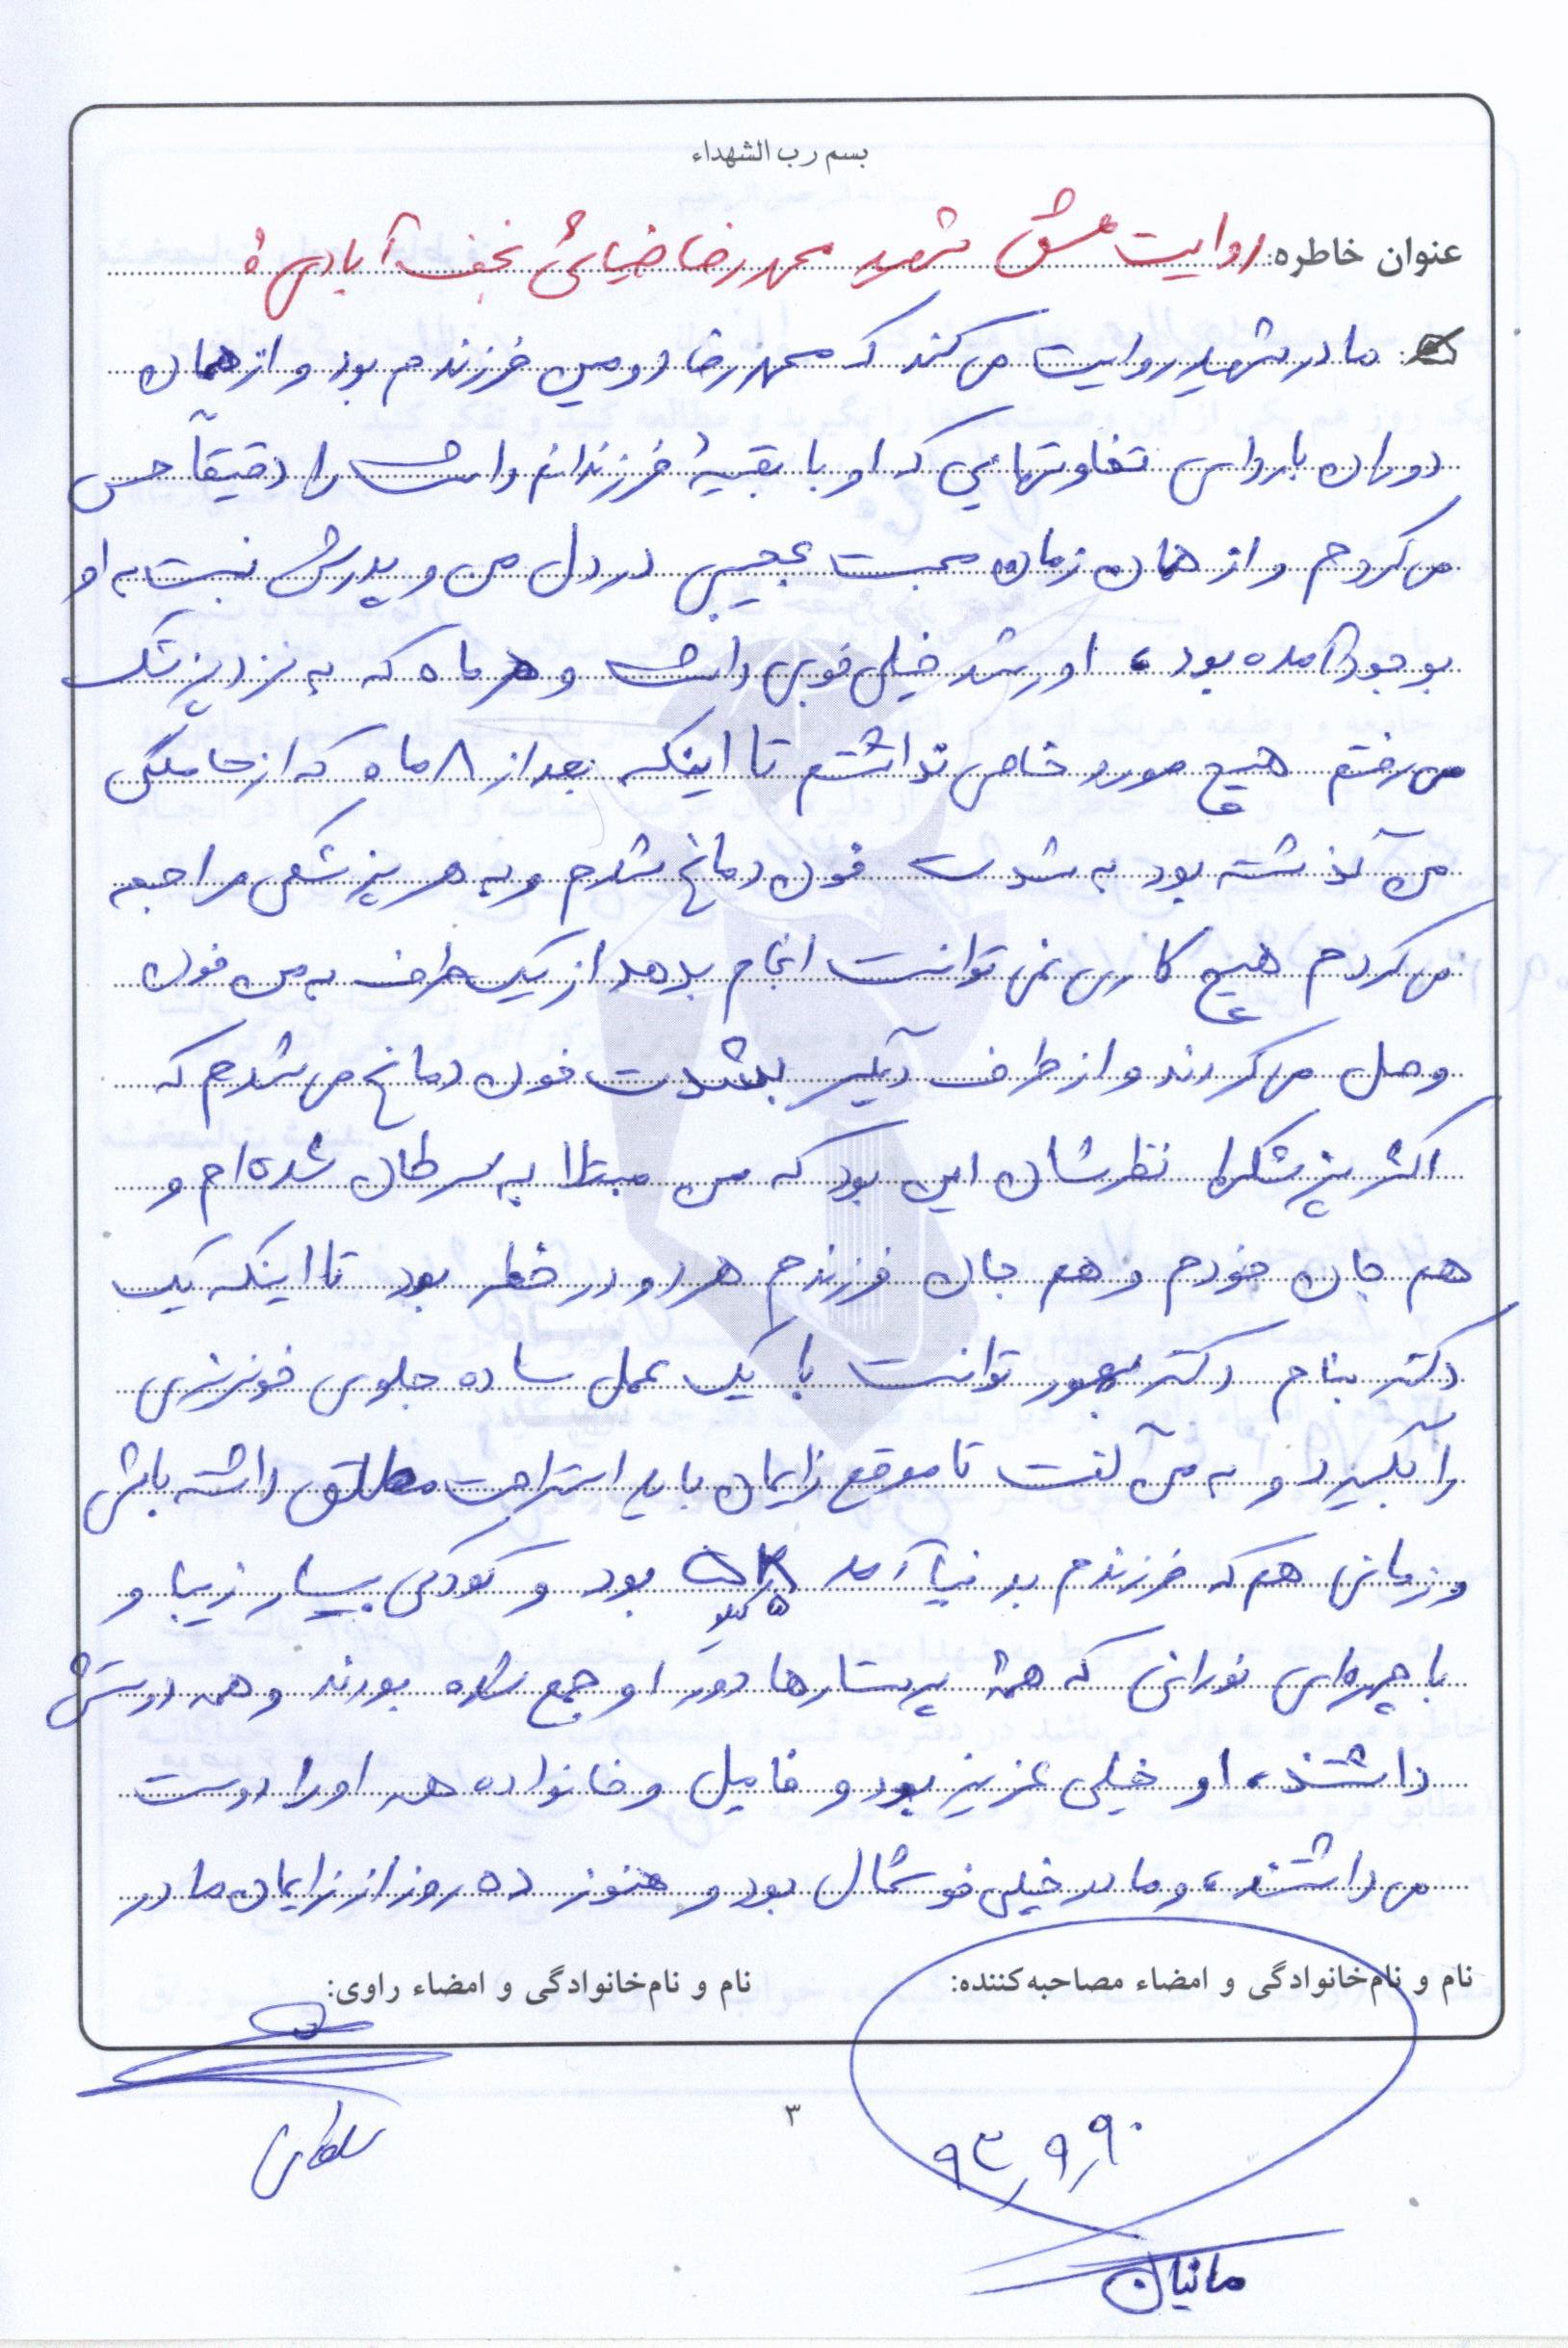 بسم رب الشهداء
عنوان خاطره: روایت عشق شهید محمدرضا ضیائی نجف آبادی
مادر شهید روایت می‌کند که محمدرضا دومین فرزندم بود و از همان
دوران بارداری تفاوتهایی که او با بقیهٔ فرزندانم داشت را دقیقاً حس
می‌کردم و از همان زمان محبت عجیبی در دل من و پدرش نسبت به او
بوجود آمده بود، او رشد خیلی خوبی داشت و هر ماه که به نزد پزشک
می‌رفتم هیچ مورد خاصی نداشتم تا اینکه بعد از ۸ ماه که از حاملگی
من گذشته بود به شدت خون دماغ شدم و به هر پزشکی مراجعه
می‌کردم هیچ کاری نمی‌توانست انجام بدهد از یک طرف به من خون
وصل می‌کردند و از طرف دیگر بشدت خون دماغ می‌شدم که
اکثر پزشکها نظرشان این بود که من مبتلا به سرطان شده‌ام و
هم جان خودم و هم جان فرزندم هر دو در خطر بود تا اینکه یک
دکتر بنام دکتر توانست با یک عمل ساده جلوی خونریزی
را بگیرد و به من گفت تا موقع زایمان باید استراحت مطلق داشته باشی
و زمانی هم که فرزندم بدنیا آمد ۵ کیلو بود و کودکی بسیار زیبا و
با چهره‌ای نورانی که همهٔ پرستارها دور او جمع شده بودند و همه دوستش
داشتند، او خیلی عزیز بود و فامیل و خانواده همه او را دوست
می‌داشتند، و مادر خیلی خوشحال بود و هنوز ده روز از زایمان مادر
نام و نام‌خانوادگی و امضاء مصاحبه‌کننده:
نام و نام‌خانوادگی و امضاء راوی:
۳
مانیان